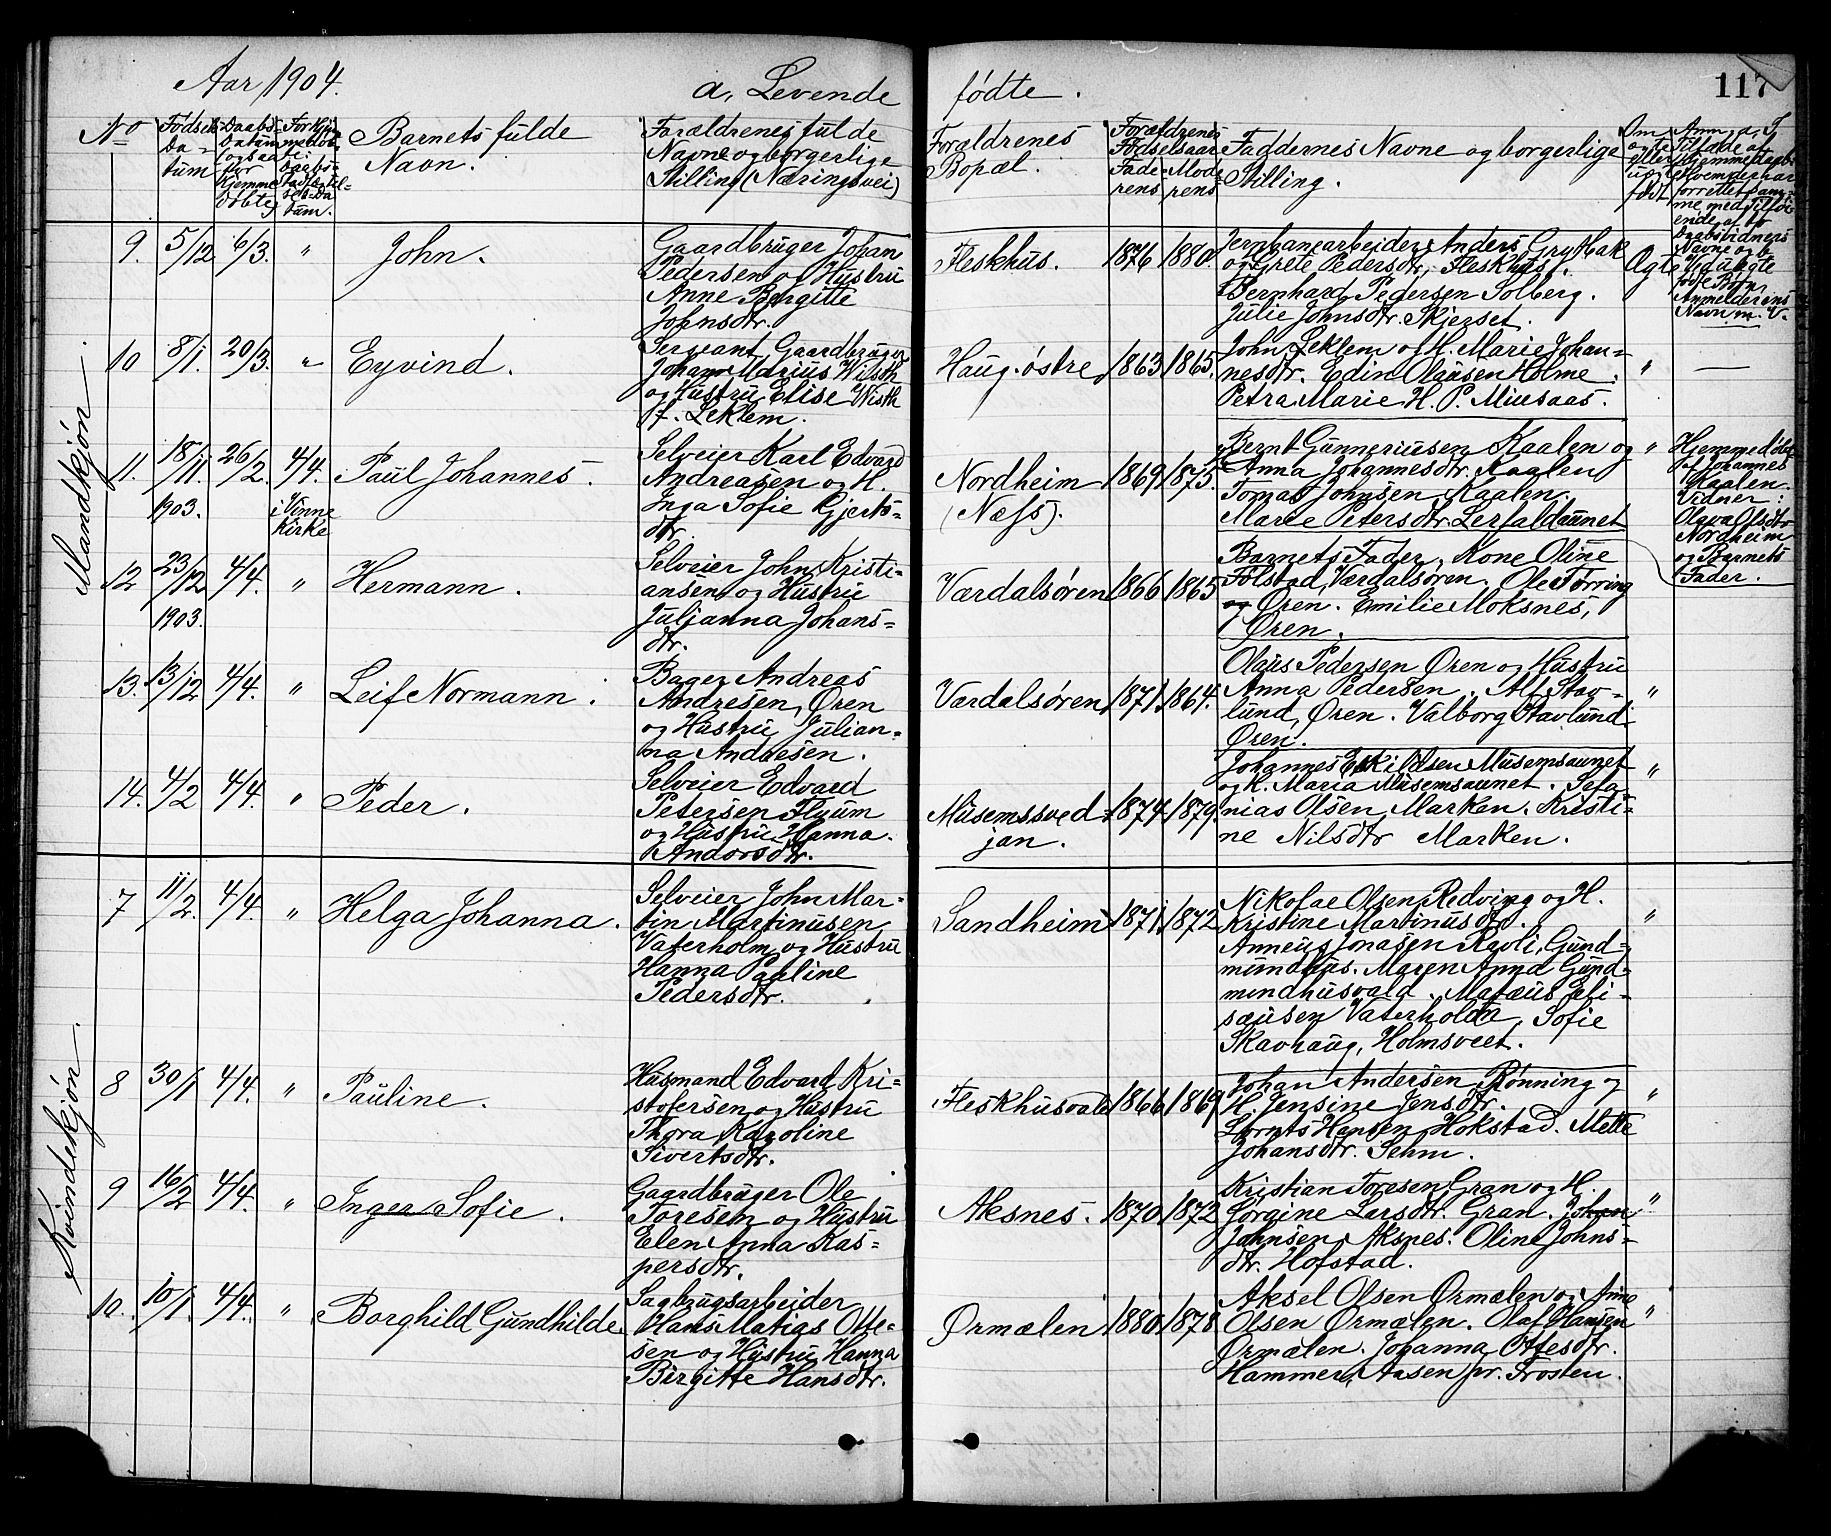 Aar 1904.
a, Levende fødte.
117
No
Fødsels Datum
Daabs-Datum ogsaa for Hjemmedøbte
Barnets fulde Navn.
Forældrenes fulde Navne og borgerlige Stilling (Næringsvei)
Forældrenes Bopæl.
Forældrenes Fødselsaar
Faderens
Moderens
Faddernes Navne og borgerlige Stilling.
Om ægte eller uægte født
Mandkjøn.
9. 5/12 6/3. " John.
Gaardbruger Johan
Pedersen og Hustru
Anne Bergitte
Johnsdtr.
Fleskhus. 1876 1880.
Jernbanearbeider Anders Grythbak
og Grete Pedersdtr. Fleskhus.
Bernhard Pedersen Solberg.
Julie Johnsdtr. Skjerset.
Ægte
10 8/1. 20/3. " Eyvind.
Sergeant, Gaardbruger
Johann Marius Wisth
og Hustru Elise Wisth
f. Leklem.
Haug østre 1863 1865.
John Leklem og H. Marie Johan=
nesdtr. Edin Olausen Holme.
Petra Marie H. P. Miusaas.
" —
11. 18/11. 1903. 26/2. 4/4. i Vinne Kirke
Paul Johannes.
Selveier Karl Edvard
Andreasen og H.
Inga Sofie Gjerts=
dtr.
Nordheim
(Næss).
1869 1875.
Bernt Gunneriusen Kaalen og
Anna Johannesdtr. Kaalen
Tomas Johnsen Kaalen.
Marie Petersdtr. Lerfaldaunet
"
Hjemmedøbt
af Johannes
Kaalen.
Vidner:
Olava Olsdtr
Nordheim
og Barnets
Fader.
12 23/12 1903. 4/4. " Hermann.
Selveier John Kristi-
ansen og Hustru
Juljanna Johans=
dtr.
Værdalsøren 1866 1865
Barnets Fader, Kone Oline
Folstad, Værdalsøren. Ole Tørring
og Øren. Emilie Moksnes,
Øren.
13. 13/12 4/4. " Leif Normann.
Bager Andreas
Andresen, Øren
og Hustru Julian=
na Andresen.
Værdalsøren 1871. 1864.
Olaus Pedersen Øren og Hustru
Anna Pedersen. Alf Stav=
lund, Øren. Valborg Stavlund
Øren.
"
14. 4/2 4/4. " Peder.
Selveier Edvard
Petersen Flyum
og Hustru Hanna.
Andorsdtr.
Musemssved=
jan.
1874. 1879.
Johannes Eskilsen Musemsaunet
og H. Maria Musemsaunet. Sefa=
nias Olsen Marken. Kristi=
ne Nilsdtr Marken.
"
Kvindekjøn.
7 11/2. 4/4. " Helga Johanna.
Selveier John Mar=
tin Martinusen
Vaterholm og Hustru
Hanna Pauline
Pedersdtr.
Sandheim 1871. 1872
Nikolae Olsen Redving og H.
Kristine Martinusdtr.
Anneus Jonasen Ravli, Gund=
mundhus. Maren Anna Gund=
mundhusvald. Matæus Eli=
sæusen Vaterholm, Sofie
Skavhaug, Holmsveet.
"
8 30/1 4/4. " Pauline.
Husmand Edvard Kri=
stofersen og Hustru
Thora Karoline
Sivertsdtr.
Fleskhusvald 1866 1869
Johan Andersen Rønning og
H. Jensine Jensdtr.
Lornts Hansen Hokstad. Mette
Johansdtr. Sehm.
"
9 16/2 4/4. " Inger Sofie.
Gaardbruger Ole
Toresen og Hustru
Elen Anna Kas=
persdtr.
Aksnes. 1870 1872
Kristian Toresen Gran og H.
Jørgine Larsdtr. Gran. Johan
Johnsen Aksnes. Oline Johns=
dtr. Hofstad.
"
10. 10/1. 4/4. " Borghild Gundhilde
Sagbrugsarbeider
Hans Matias Otte=
sen og Hustru Hanna
Birgitte Hansdtr.
Ørmælen 1880 1878
Aksel Olsen Ørmælen og Anne
Olsen Ørmælen. Olaf Hansen
Ørmælen. Johanna Ottesdtr.
Hammer, Aasen pr. Frosten.
"